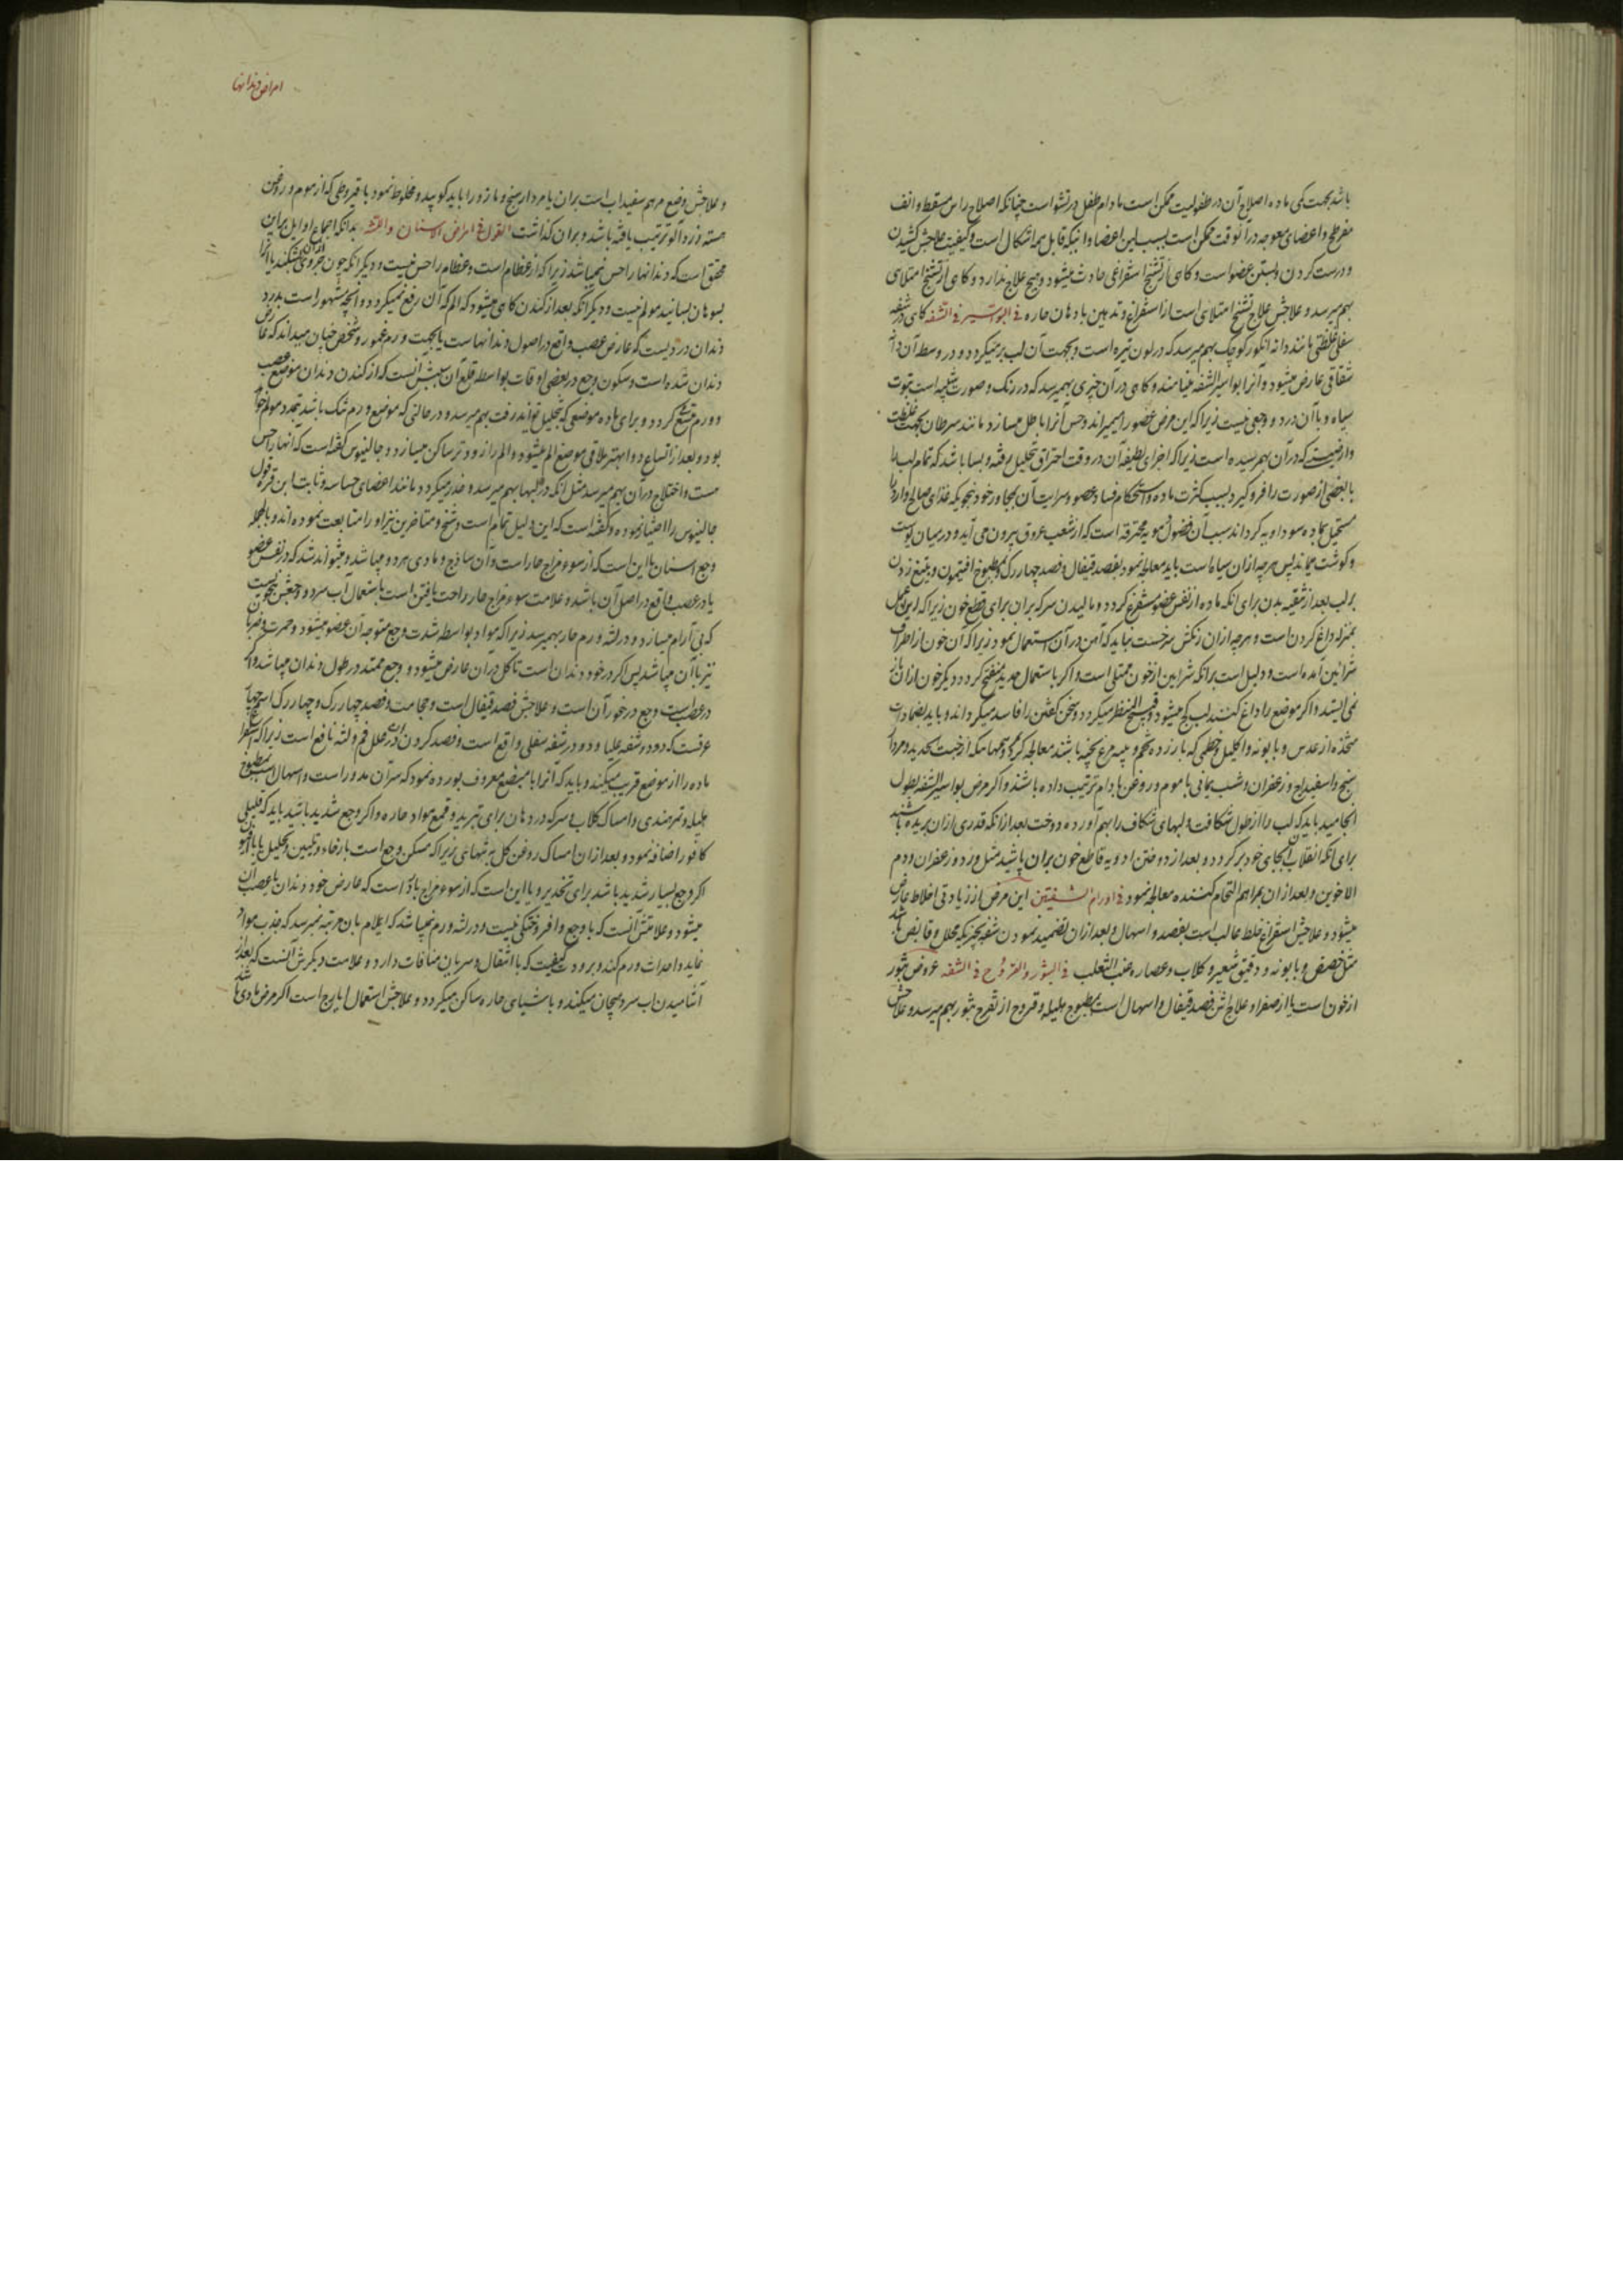 باشد بجهت کمی ماده اصلاح آن در طفولیت ممکن است مادام طفل در نشو است چنانکه اصلاح راس مسقط و انف
مفرطح و اعضای معوجه در آنوقت ممکن است بسبب لین اعضا و اینکه قابل همه اشکال است و کیفیت علاجش کشیدن
و درست کردن و بستن عضو است و کاهی از تشنج استفراغی حادث میشود و هیچ علاج ندارد و کاهی از تشنج امتلای
بهم میرسد و علاجش علاج تشنج امتلای است از استفراغ و تدهین بادهان حاره فی البواسیر فی الشفه کاهی در شفه
سفلی غلظتی مانند دانه انکور کوچک بهم میرسد که در لون تیره است و بجهت آن لب بر میکردد و در وسط آن
شقاقی عارض میشود و آنرا بواسیر الشفه مینامند و کاهی در آن چیزی بهمیرسد که در رنک و صورت شبیه است بتوت
سیاه و با آن درد و وجعی نیست زیرا که این مرض عضو را میمیراند و حس آنرا باطل میسازد مانند سرطان بجهت غلظت
و ارضیت که در آن بهمرسیده است زیرا که اجزای لطیفه آن در وقت احتراق تحلیل رفته و بسا باشد که تمام لب یا
با بعضی از صورت را فرو کیرد بسبب کثرت ماده و استحکام فساد عضو و سرایت آن بمجاور خود بنحویکه غذای صالح وارد را
مستحیل بماده سوداویه کرداند سبب آن فضول دمویه محترقه است که از شعب عروق بیرون می آید و در میان پوست
و کوشت میماند پس هرچه از آن سیاه است باید معالجه نمود بفصد قیفال و فصد چهار رک و مطبوخ افتیمون و تیغ زدن
بر لب بعد از تنقیه بدن برای انکه ماده از نفس عضو مستفرغ کردد و مالیدن سرکه بران برای قطع خون زیرا که این عمل
بمنزله داغ کردن است و هرچه از ان رنکش سرخست نباید که آهن در آن استعمال نمود زیرا که آن خون از اطراف
شرائین آمده است و دلیل است برانکه شرایین از خون ممتلی است و اکر باستعمال حدید منفتح کردد دیکر خون از ان باز
نمی ایستد و اکر موضع را داغ کنند لب کج میشود و قبیح المنظر میکردد و سخن کفتن را فاسد میکرداند و باید بضمادات
متخذه از عدس و بابونه و اکلیل و خطمی که با زرده تخم و پیه مرغ پخته باشند معالجه کرد و مرهمها میکه از خبث حدید و مردا
سنج و اسفیداج و زعفران و شب یمانی با موم و روغن بادام ترتیب داده باشند و اکر مرض بواسیر الشفه بطول
انجامید باید که لب را از طول شکافت و لبهای شکاف را بهم آورده دوخت بعد از انکه قدری از ان بریده باشند
برای انکه انقلاب آن بجای خود بر کردد و بعد از دوختن ادویه قاطع خون بران پاشید مثل ورد و زعفران و دم
الاخوین و بعد از ان بمراهم التحام کننده معالجه نمود فی اورام الشفتین این مرض از زیادتی اخلاط عارض
میشود و علاجش استفراغ خلط غالب است بفصد و اسهال و بعد از ان تضمید نمودن شفه بچیزیکه محلل و قابض باشد
مثل حضض و بابونه و دقیق شعیر و کلاب و عصاره عنب الثعلب فی البثور و القروح فی الشفه عروض بثور
از خون است یا از صفرا و علاج اش فصد قیفال و اسهال است بمطبوخ هلیله و قروح از تقرح بثور بهم میرسد و علاجش
امراض دندانها
و علاجش وضع مرهم سفیداب است بران یا مردار سنج و مازو را باید کوبید و مخلوط نمود با قیروطی که از موم و روغن
هسته زردآلو ترتیب یافته باشد و بران کذاشت القول فی امراض الاسنان و اللثه بدانکه اجماع اوایل براین
محقق است که دندانها را حس نمیباشد زیرا که از عظام است و عظام را حس نیست و دیکر انکه چون جزوی از ان بشکنند یا آنرا
بسوهان بسایند مولم نیست و دیکر انکه بعد از کندن کاهی میشود که الم که آن رفع نمیکردد و انچه مشهور است بدرد
دندان دردیست که عارض عصب واقع در اصول دندانهاست یا بجهت ورم عمور و شخص چنان میداند که عارض
دندان شده است و سکون وجع در بعضی اوقات بواسطه قلع آن سببش آنست که از کندن دندان موضع عصب
و ورم متسع کردد و برای ماده موضعی که بتحلیل تواند رفت بهم میرسد و در حالتی که موضع ورم تنک باشد تمدد مولم خواهد
بود و بعد از اتساع دوا بهتر ملاقی موضع الم میشود و الم را زودتر ساکن میسازد و جالینوس کفته است که انها را حس
هست و اختلاج در آن بهم میرسد مثل انکه در لبها بهم میرسد و خدر میکردد مانند اعضای حساسه و ثابت ابن قره قول
جالینوس را اختیار نموده و کفته است که این دلیل تمام است و شیخ و متاخرین نیز او را متابعت نموده اند و بالجمله
وجع اسنان یا این است که از سوء مزاج حار است و آن ساذج و مادی هر دو میباشد و میتواند شد که در نفس عضو
یا در عصب واقع در اصل آن باشد و علامت سوء مزاج حار راحت یافتن است باستعمال آب سرد و وجعش بنحویست
که بی آرام میسازد و در لثه ورم حار بهمیرسد زیرا که مواد بواسطه شدت وجع متوجه آن عضو میشود و حمرت و ضربان
نیز با آن میباشد پس اکر در خود دندان است تاکل در آن عارض میشود و وجع ممتد در طول دندان میباشد و اکر
در عصب است وجع در غور آن است و علاجش فصد قیفال است و حجامت و فصد چهار رک و چهار رک اسم چهار
عرقست که دو در شفه علیا و دو در شفه سفلی واقع است و فصد کردن آن در علل فم و لثه نافع است زیرا که استفراغ
ماده را از موضع قریب میکند و باید که آنرا با مبضع معروف بورده نمود که سر آن مدور است و اسهال است بمطبوخ
هلیله و تمر هندی و امساک کلاب و سرکه در دهان برای تبرید و قمع مواد حاره و اکر وجع شدید باشد باید که قلیلی
کافور اضافه نمود و بعد از ان امساک روغن کل به تنهای زیرا که مسکن وجع است بارخاء و تلیین و تحلیل یا با افیون
اکر وجع بسیار شدید باشد برای تخدیر و یا این است که از سوء مزاج بارد است که عارض خود دندان یا عصب آن
میشود و علامتش آنست که با وجع وافر و ختکی نیست و در لثه ورم نمیباشد که ایلام بان مرتبه نمیرسد که جذب مواد
نماید و احداث ورم کند و برودت کیفیت که با انتقال و سریان منافات دارد و علامت دیکرش آنست که بعد از
آشامیدن اب سرد هیجان میکند و با شیای حاره ساکن میکردد و علاجش استعمال ایارج است اکر مرض مادی باشد